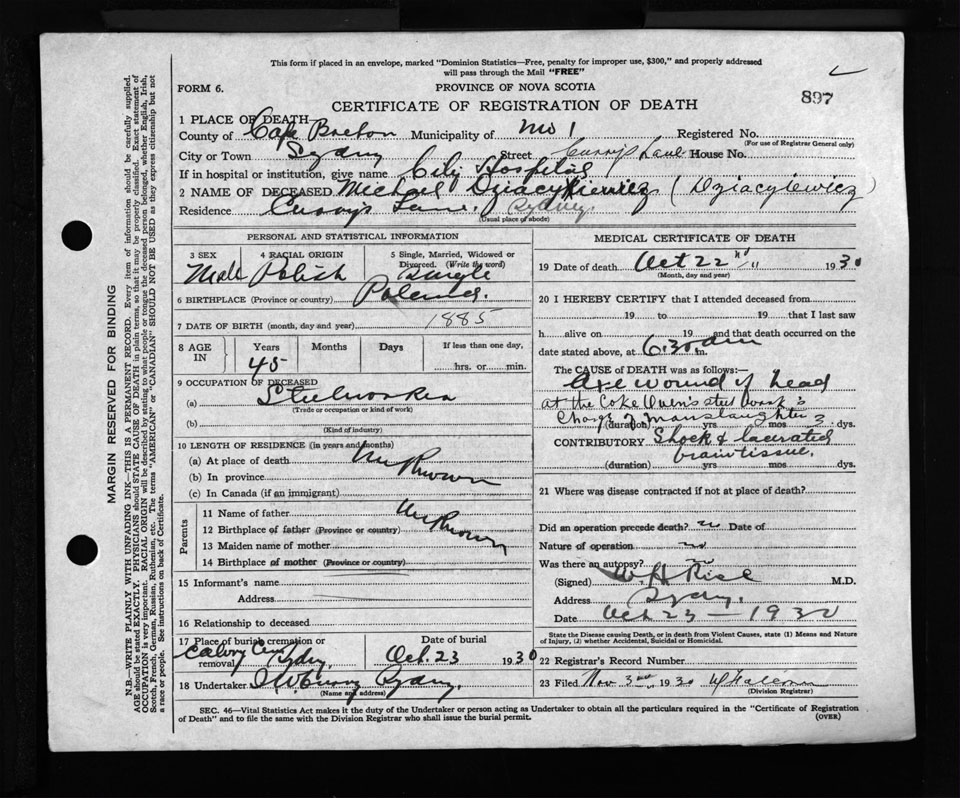 This form if placed in an envelope, marked "Dominion Statistics—Free, penalty for improper use, $300," and properly addressed
will pass through the Mail "FREE"
FORM 6.
PROVINCE OF NOVA SCOTIA
897
CERTIFICATE OF REGISTRATION OF DEATH
1 PLACE OF DEATH
County of Cape Breton Municipality of No 1 Registered No.
(For use of Registrar General only)
City or Town Sydney Street Curry's Lane House No.
If in hospital or institution, give name City Hospital
2 NAME OF DECEASED Michael Dziacykiewicz (Dziacyiewicz)
Residence Curry's Lane. Sydney.
(Usual place of abode)
PERSONAL AND STATISTICAL INFORMATION
3 SEX Male
4 RACIAL ORIGIN Polish
5 Single, Married, Widowed or Divorced. (Write the word) Single
6 BIRTHPLACE (Province or country) Poland.
7 DATE OF BIRTH (month, day and year) 1885
8 AGE IN Years Months Days If less than one day,
45 hrs. or min.
9 OCCUPATION OF DECEASED
(a) Steelworker
(Trade or occupation or kind of work)
(b)
(Kind of industry)
10 LENGTH OF RESIDENCE (in years and months)
(a) At place of death Unknown
(b) In province
(c) In Canada (if an immigrant)
Parents
11 Name of father Unknown
12 Birthplace of father (Province or country)
13 Maiden name of mother
14 Birthplace of mother (Province or country)
15 Informant's name
Address
16 Relationship to deceased
17 Place of burial cremation or removal Calvry Cem Sydney.
Date of burial Oct. 23 1930
18 Undertaker Curry Sydney.
(Name and address)
MEDICAL CERTIFICATE OF DEATH
19 Date of death Oct 22 1930
(Month, day and year)
20 I HEREBY CERTIFY that I attended deceased from
19 to 19 that I last saw
h alive on 19 and that death occurred on the
date stated above, at 6.30 am m.
The CAUSE OF DEATH was as follows:—
Axe wound of head
at the Coke Oven's steel works
Charge of Manslaughter
(duration) yrs mos dys.
CONTRIBUTORY Shock & lacerated
brain tissue.
(duration) yrs mos dys.
21 Where was disease contracted if not at place of death?
Did an operation precede death? no Date of
Nature of operation no
Was there an autopsy?
(Signed) W. H. Rice M.D.
Address Sydney.
Date Oct 23 — 1930
State the Disease causing Death, or in death from Violent Causes, state (1) Means and Nature
of Injury, (2) whether Accidental, Suicidal or Homicidal.
22 Registrar's Record Number
23 Filed Nov 3rd 1930
(Division Registrar)
SEC. 46—Vital Statistics Act makes it the duty of the Undertaker or person acting as Undertaker to obtain all the particulars required in the "Certificate of Registration
of Death" and to file the same with the Division Registrar who shall issue the burial permit.
(OVER)
MARGIN RESERVED FOR BINDING
N.B.—WRITE PLAINLY WITH UNFADING INK—THIS IS A PERMANENT RECORD. Every item of information should be carefully supplied.
AGE should be stated EXACTLY. PHYSICIANS should STATE CAUSE OF DEATH in plain terms, so that it may be properly classified. Exact statement of
OCCUPATION is very important. RACIAL ORIGIN will be described by stating to what people or tongue the deceased person belonged, whether English, Irish,
Scotch, French, German, Russian, Ruthenian, etc. The terms "AMERICAN" or "CANADIAN" SHOULD NOT BE USED as they express citizenship but not
a race or people. See instructions on back of Certificate.